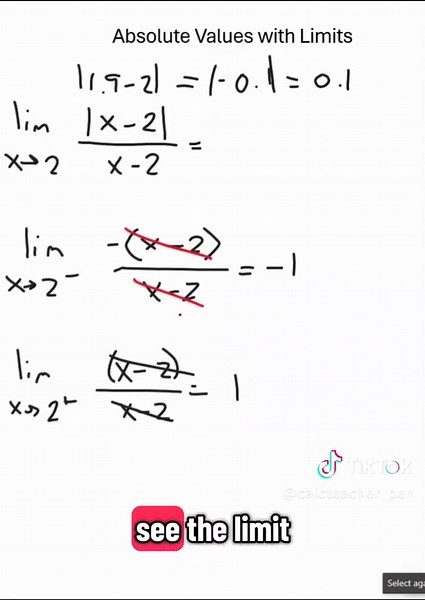 Absolute Values with Limits
|1.9-2| = |-0.1| = 0.1
lim x→2 |x-2| / x-2 =
lim x→2⁻ -(x-2) / x-2 = -1
lim x→2⁺ (x-2) / x-2 = 1
TikTok
@calcteacher_pan
see the limit
Select aga